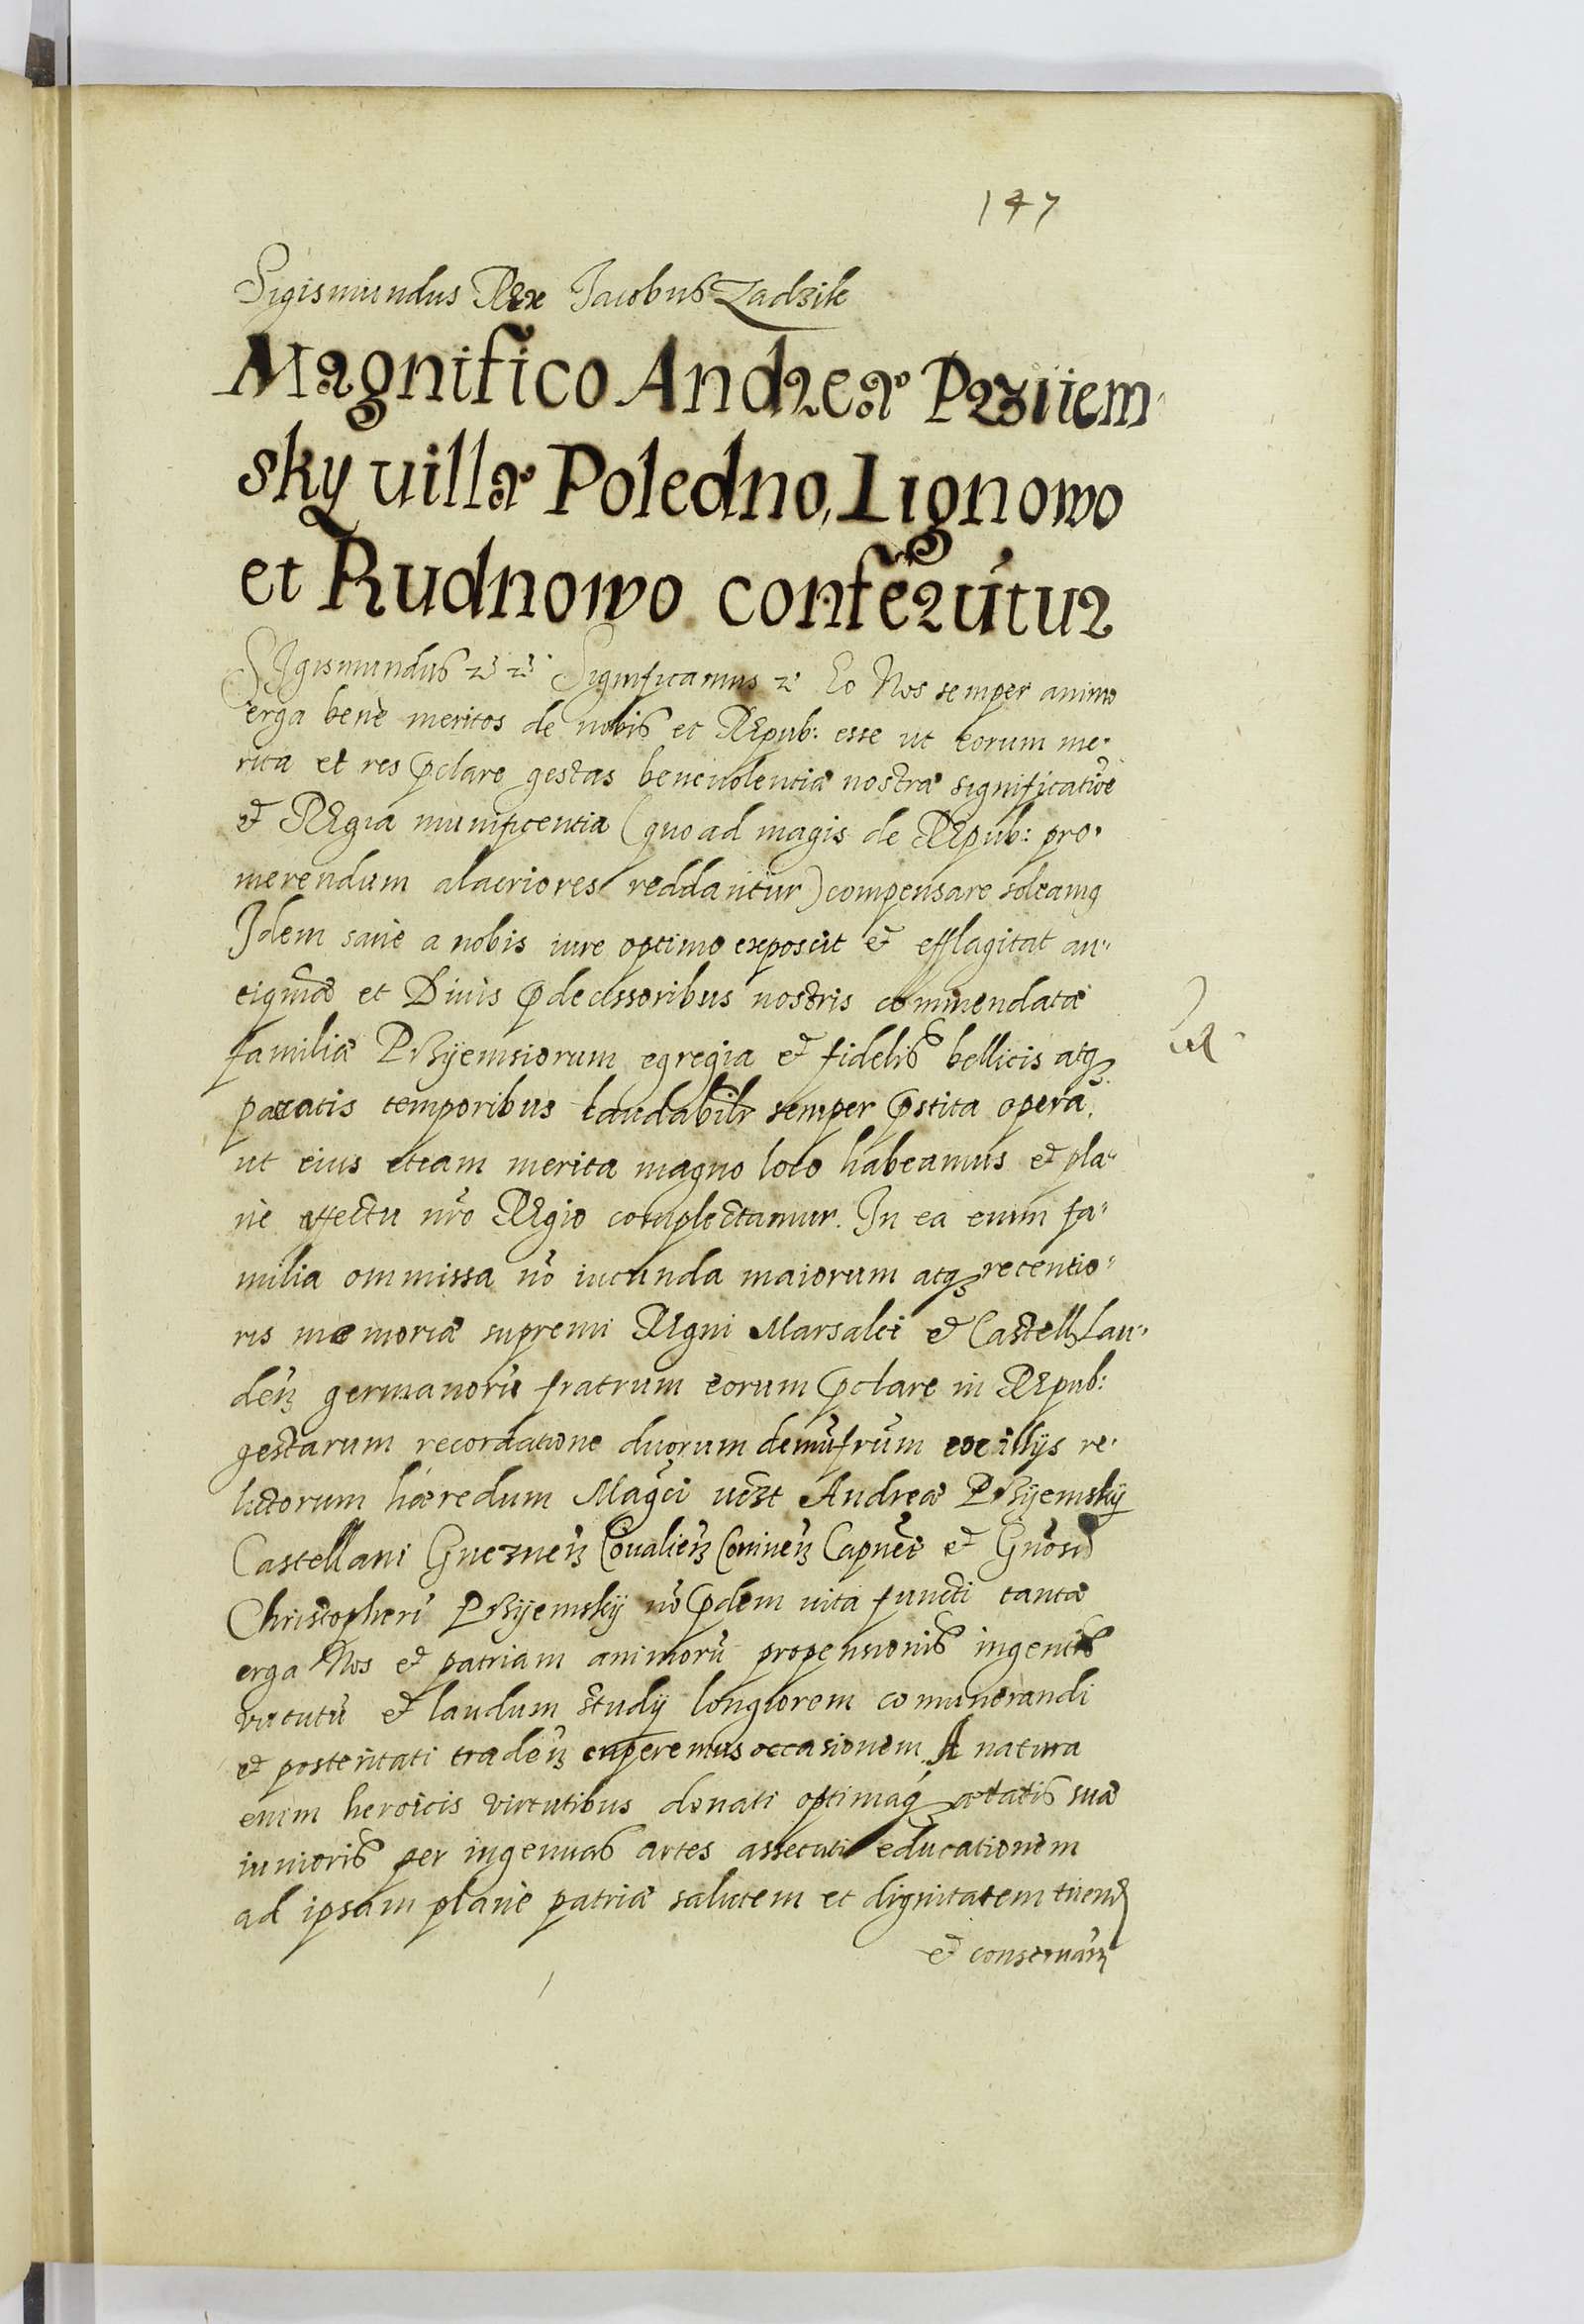 147
Sigismundus Rex Jacobus Zadzik
Magnifico Andreæ Przÿem-
sky uillæ Poledno, Lignowo
et Rudnowo conferu̅tur
SIgismundus Significamus Eo Nos semper animo
erga benè meritos de nobis et Repub: esse ut eorum me-
rita et res p̱clare gestas beneuolentiæ nostræ significatio̅e
et Regia munificentia (quo ad magis de Repub: pro-
merendum alacriores reddantur) compensare soleamꝰ
Idem sanè a nobis iure optimo exposcit et efflagitat an-
tiquæ et Diuis p̱decessoribus nostris commendatæ
familiæ Przÿemsiorum egregia et fidelis bellicis atqꝫ
pacatis temporibus laudabilr semper p̱stita opera,
ut eius etiam merita magno loco habeamus et pla-
nè affectu nr̅o Regio complectamur. In ea enim fa-
milia ommissa no̅ iucunda maiorum atqꝫ recentio-
ris memoriæ supremi Regni Marsalci et Castell Lan-
den̅ germanoru̅ fratrum eorum p̱clare in Repub:
gestarum recordatione duorum demu̅ fr̅um ex illÿs re-
lictorum hæredum Mag̅ci Andreæ Przÿemskÿ
Castellani Gneznen̅ Coualien̅ Coninen̅ Capnei et Gn̅osi
Christopheri Przÿemskÿ no̅ p̱dem uita functi tantæ
erga Nos et patriam animoru̅ propensionis ingentis
virtutu̅ et laudum studÿ longiorem comunerandi
et posteritati traden̅ cuperemus occasionem A natura
enim heroicis virtutibus donati optimaqꝫ ætatis suæ
iunioris per ingenuas artes assecuti educationem
ad ipsam planè patriæ salutem et dignitatem tuend
et conseruan̅